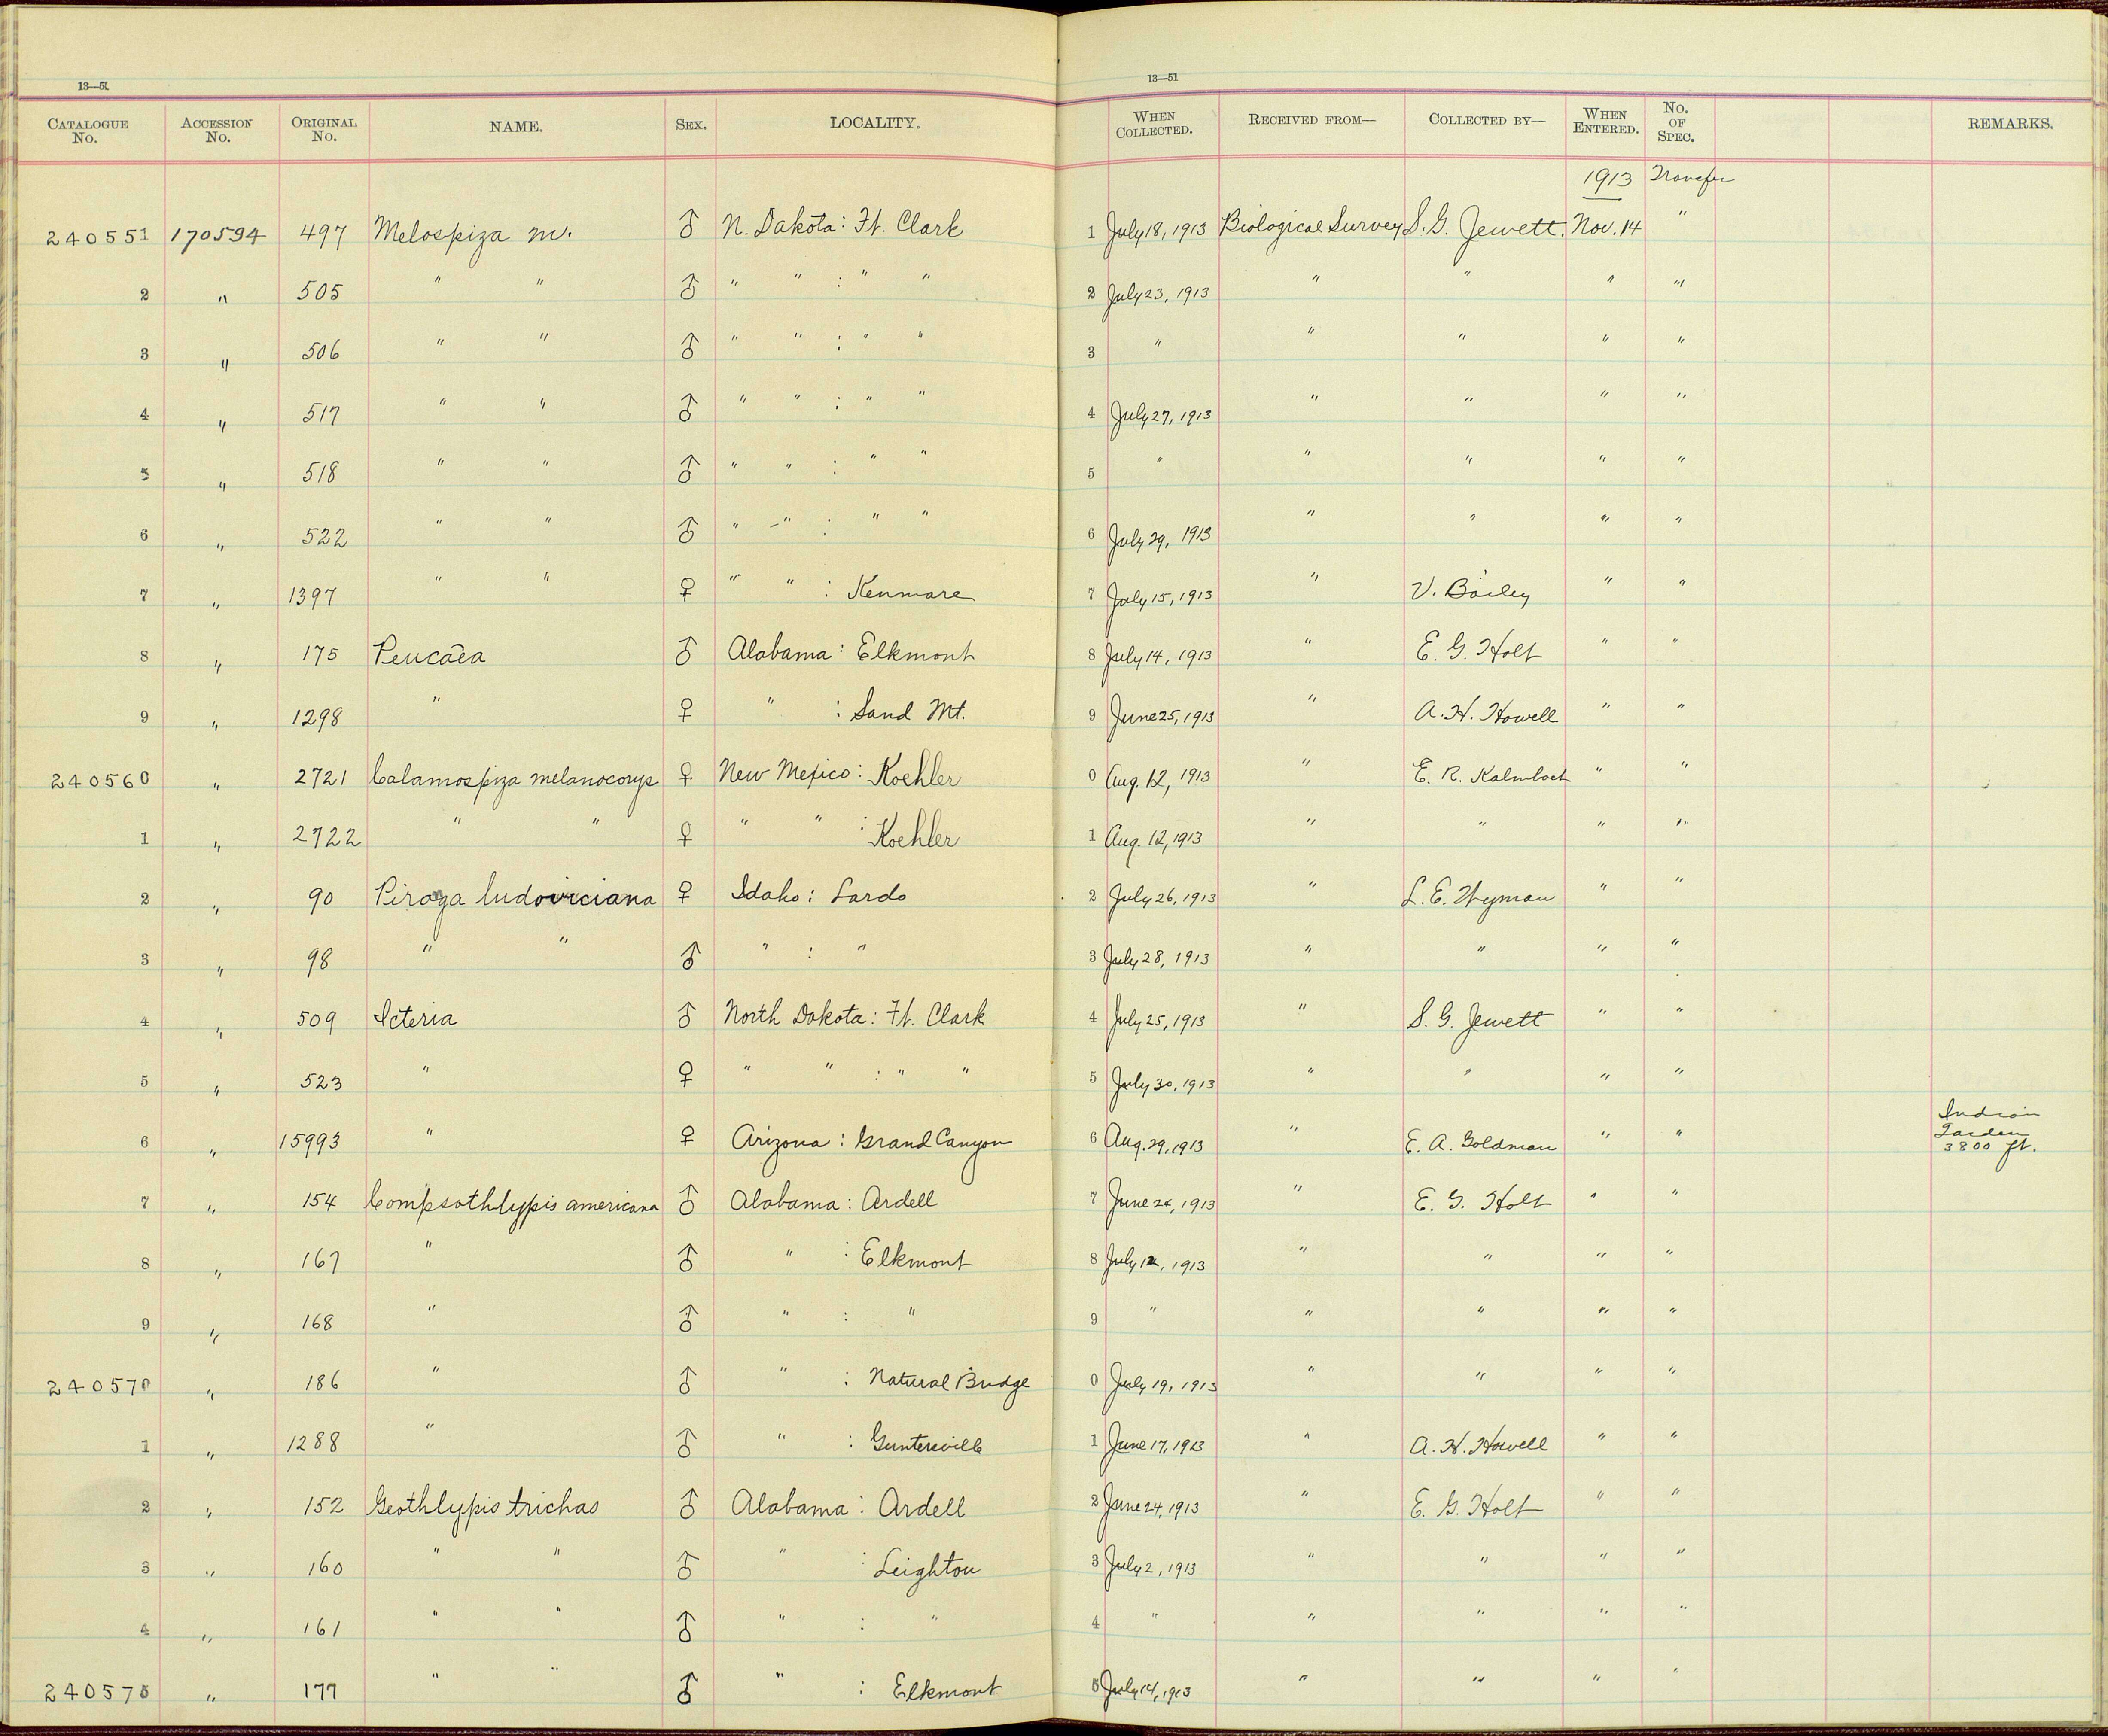 13—51 13—51
CATALOGUE No. ACCESSION No. ORIGINAL No. NAME. SEX. LOCALITY. WHEN COLLECTED. RECEIVED FROM— COLLECTED BY— WHEN ENTERED. No. OF SPEC. REMARKS.
1913 Transfer
240551 170594 497 Melospiza m. ♂ N. Dakota: Ft. Clark 1 July 18, 1913 Biological Survey S. G. Jewett. Nov. 14 "
2 " 505 " " ♂ " " : " " 2 July 23, 1913 " " " "
3 " 506 " " ♂ " " : " " 3 " " " " "
4 " 517 " " ♂ " " : " " 4 July 27, 1913 " " " "
5 " 518 " " ♂ " " : " " 5 " " " " "
6 " 522 " " ♂ " " : " " 6 July 29, 1913 " " " "
7 " 1397 " " ♀ " " : Kenmare 7 July 15, 1913 " V. Bailey " "
8 " 175 Peucaea ♂ Alabama: Elkmont 8 July 14, 1913 " E. G. Holt " "
9 " 1298 " ♀ " : Sand Mt. 9 June 25, 1913 " A. H. Howell " "
240560 " 2721 Calamospiza melanocorys ♀ New Mexico: Koehler 0 Aug. 12, 1913 " E. R. Kalmbach " "
1 " 2722 " " ♀ " " : Koehler 1 Aug. 12, 1913 " " " "
2 " 90 Piraga ludoviciana ♀ Idaho: Lardo 2 July 26, 1913 " L. E. Wyman " "
3 " 98 " " ♂ " : " 3 July 28, 1913 " " " "
4 " 509 Icteria ♂ North Dakota: Ft. Clark 4 July 25, 1913 " S. G. Jewett " "
5 " 523 " ♀ " " : " " 5 July 30, 1913 " " " "
6 " 15993 " ♀ Arizona: Grand Canyon 6 Aug. 29, 1913 " E. A. Goldman " " Indian Garden 3800 ft.
7 " 154 Compsothlypis americana ♂ Alabama: Ardell 7 June 24, 1913 " E. G. Holt " "
8 " 167 " ♂ " : Elkmont 8 July 12, 1913 " " " "
9 " 168 " ♂ " : " 9 " " " " "
240570 " 186 " ♂ " : Natural Bridge 0 July 19, 1913 " " " "
1 " 1288 " ♂ " : Guntersville 1 June 17, 1913 " A. H. Howell " "
2 " 152 Geothlypis trichas ♂ Alabama: Ardell 2 June 24, 1913 " E. G. Holt " "
3 " 160 " " ♂ " : Leighton 3 July 2, 1913 " " " "
4 " 161 " " ♂ " : " 4 " " " " "
240575 " 177 " " ♂ " : Elkmont 5 July 14, 1913 " " " "